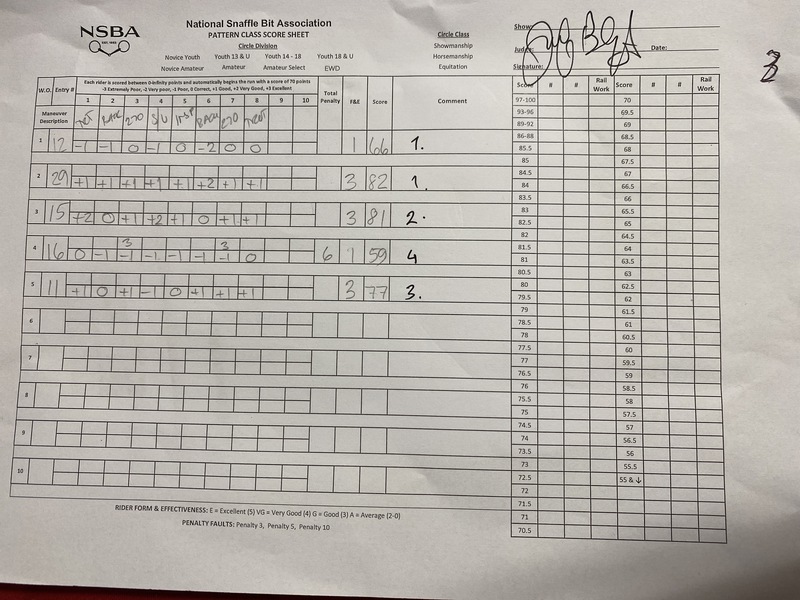 NSBA
EST. 1983
National Snaffle Bit Association
PATTERN CLASS SCORE SHEET
Circle Division
Novice Youth Youth 13 & U Youth 14 - 18 Youth 18 & U
Novice Amateur Amateur Amateur Select EWD
Circle Class
Showmanship
Horsemanship
Equitation
Show:
Judge:
Date:
Signature:
W.O. Entry # Each rider is scored between 0-infinity points and automatically begins the run with a score of 70 points
-3 Extremely Poor, -2 Very poor, -1 Poor, 0 Correct, +1 Good, +2 Very Good, +3 Excellent
1 2 3 4 5 6 7 8 9 10
Total Penalty F&E Score Comment
Maneuver Description 270 S/U INSP BACK 270 TROT
1 12 -1 -1 0 -1 0 -2 0 0 1 66 1.
2 29 +1 +1 +1 +1 +1 +2 +1 +1 3 82 1.
3 15 +2 0 +1 +2 +1 0 +1 +1 3 81 2.
3 3
4 16 0 -1 -1 -1 -1 -1 -1 0 6 1 59 4
5 11 +1 0 +1 -1 0 +1 +1 +1 3 77 3.
6
7
8
9
10
RIDER FORM & EFFECTIVENESS: E = Excellent (5) VG = Very Good (4) G = Good (3) A = Average (2-0)
PENALTY FAULTS: Penalty 3, Penalty 5, Penalty 10
Score # # Rail Work Score # # Rail Work
97-100 70
93-96 69.5
89-92 69
86-88 68.5
85.5 68
85 67.5
84.5 67
84 66.5
83.5 66
83 65.5
82.5 65
82 64.5
81.5 64
81 63.5
80.5 63
80 62.5
79.5 62
79 61.5
78.5 61
78 60.5
77.5 60
77 59.5
76.5 59
76 58.5
75.5 58
75 57.5
74.5 57
74 56.5
73.5 56
73 55.5
72.5 55 & ↓
72
71.5
71
70.5